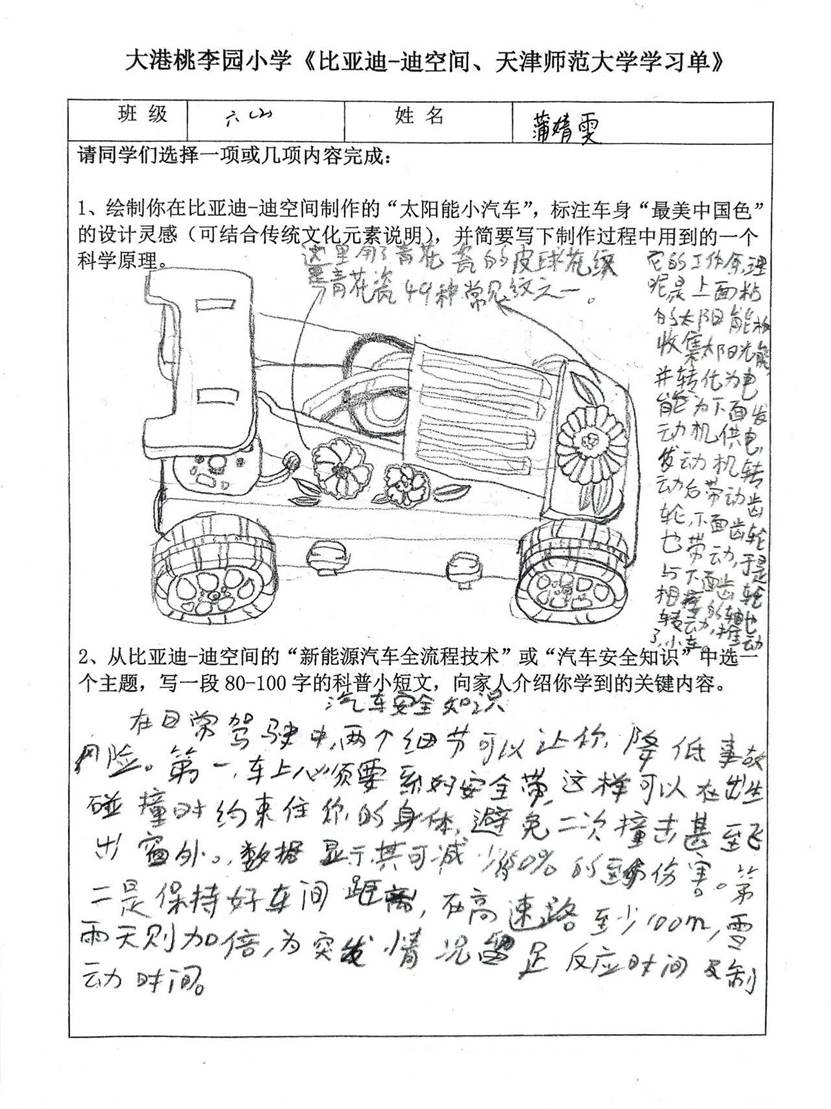 大港桃李园小学《比亚迪-迪空间、天津师范大学学习单》
班 级 六（4） 姓 名 蒲婧雯
请同学们选择一项或几项内容完成：
1、绘制你在比亚迪-迪空间制作的“太阳能小汽车”，标注车身“最美中国色”
的设计灵感（可结合传统文化元素说明），并简要写下制作过程中用到的一个
科学原理。
这里用了青花瓷的皮球花纹
是青花瓷49种常见纹之一。
它的工作原理
呢是上面粘
的太阳能板
收集太阳光能
并转化为电
能为下面发
动机供电,
发动机转
动后带动齿
轮,下面齿轮
也带动,于是
与下面齿轮
相接的轴也
转动,推动
了小车。
2、从比亚迪-迪空间的“新能源汽车全流程技术”或“汽车安全知识”中选一
个主题，写一段 80-100 字的科普小短文，向家人介绍你学到的关键内容。
汽车安全知识
在日常驾驶中,两个细节可以让你降低事故
风险。第一,车上必须要系好安全带,这样可以在出生
碰撞时约束住你的身体,避免二次撞击甚至飞
出窗外。数据显示其可减少约50%的致命伤害。第
二是保持好车间距离,在高速路至少100m,雪
雨天则加倍,为突发情况留足反应时间及制
动时间。